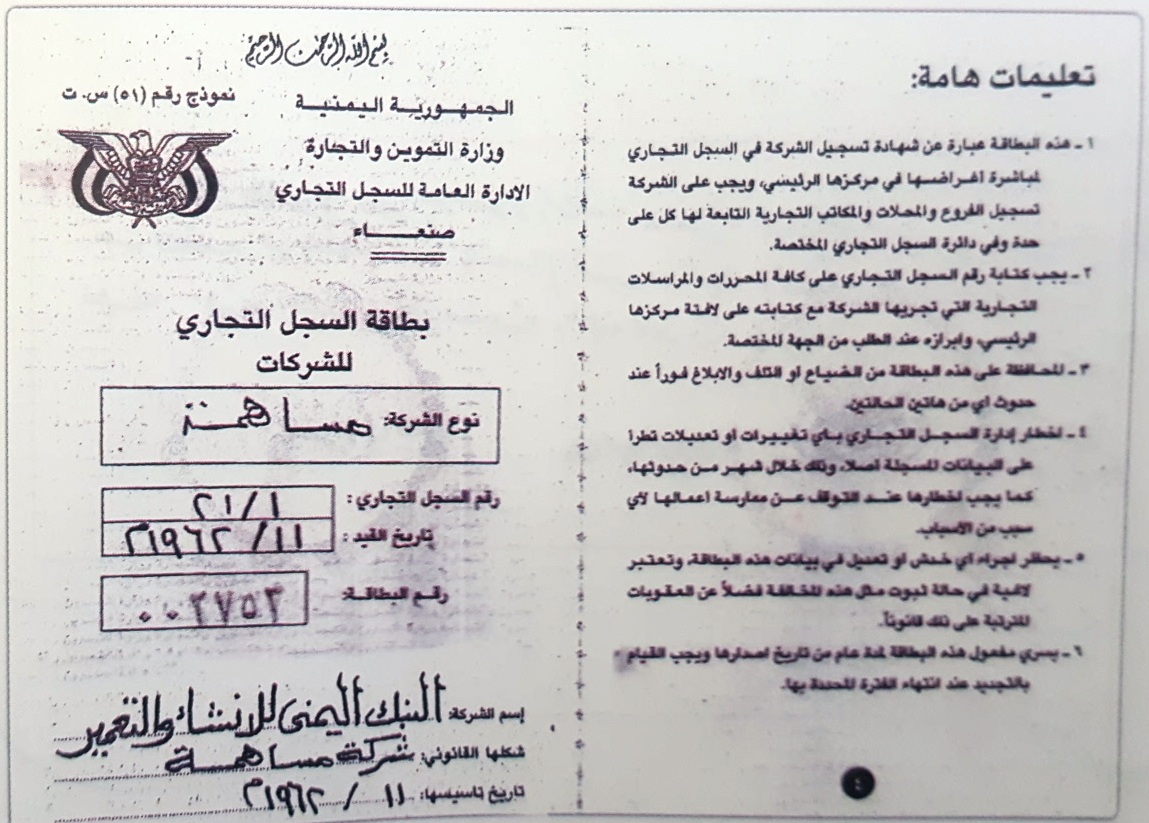 بسم الله الرحمن الرحيم
نموذج رقم (٥١) س. ت
الجمهورية اليمنية
وزارة التموين والتجارة
الادارة العامة للسجل التجاري
صنعاء
بطاقة السجل التجاري
للشركات
نوع الشركة: مساهمة
رقم السجل التجاري : ٢١/١
تاريخ القيد : ١١/ ١٩٦٢م
رقم البطاقة: ٠٠٢٧٥٣
إسم الشركة: البنك اليمنى للانشاء والتعمير
شكلها القانوني: شركة مساهمة
تاريخ تاسيسها: ١١ / ١٩٦٢م
تعليمات هامة:
١ ـ هذه البطاقة عبارة عن شهادة تسجيل الشركة في السجل التجاري
لمباشرة اغراضها في مركزها الرئيسي، ويجب على الشركة
تسجيل الفروع والمحلات والمكاتب التجارية التابعة لها كل على
حدة وفي دائرة السجل التجاري المختصة.
٢ ـ يجب كتابة رقم السجل التجاري على كافة المحررات والمراسلات
التجارية التي تجريها الشركة مع كتابته على لافتة مركزها
الرئيسي، وابرازه عند الطلب من الجهة المختصة.
٣ ـ المحافظة على هذه البطاقة من الضياع او التلف والابلاغ فوراً عند
حدوث اي من هاتين الحالتين.
٤ ـ اخطار إدارة السجل التجاري باي تغييرات او تعديلات تطرأ
على البيانات المسجلة اصلا، وذلك خلال شهر من حدوثها،
كما يجب اخطارها عند التوقف عن ممارسة اعمالها لاي
سبب من الاسباب.
٥ ـ يحظر اجراء اي خدش او تعديل في بيانات هذه البطاقة، وتعتبر
لاغية في حالة ثبوت مثل هذه المخالفة فضلاً عن العقوبات
المترتبة على ذلك قانوناً.
٦ ـ يسري مفعول هذه البطاقة لمدة عام من تاريخ اصدارها ويجب القيام
بالتجديد عند انتهاء الفترة المحددة بها.
٤